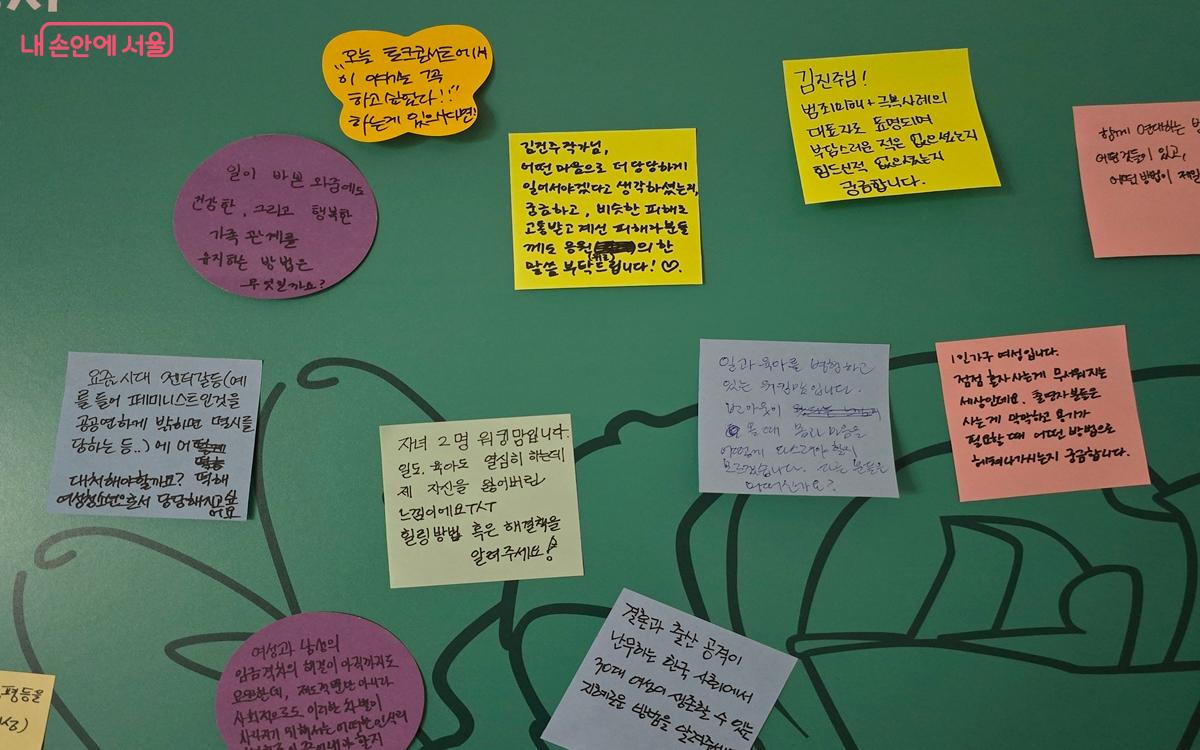 내 손안에 서울
"오늘 토크콘서트에서
이 얘기는 꼭
하고싶었다!!"
하는게 있으시다면!
김진주님!
범죄피해+극복사례의
대표자로 표명되며
부담스러운 적은 없으셨는지
힘드신적 없으셨는지
궁금합니다.
함께 연대하는
어떤것들이 있고,
어떤 방법이 제일
김진주작가님,
어떤 마음으로 더 당당하게
일어서야겠다고 생각하셨는지,
궁금하고, 비슷한 피해로
고통받고 계신 피해자분들
께도 응원의 한
(위로)
말씀 부탁드립니다! ♡.
일이 바쁜 와중에도
건강한, 그리고 행복한
가족 관계를
유지하는 방법은
무엇인가요?
요즘 시대 젠더갈등(예
를 들어 페미니스트인것을
공공연하게 밝히면 멸시를
당하는 등..)에 어떻게
대처해야할까요?
여성청소년으로서 당당해지고싶
어요
자녀 2명 워킹맘입니다.
일도, 육아도 열심히 하는데
제 자신을 잃어버린
느낌이에요ㅜㅅㅜ
힐링방법 혹은 해결책을
알려주세요!
일과 육아를 병행하고
있는 워킹맘입니다.
번아웃이
올 때 몸과 마음을
어떻게 다스려야 할지
모르겠습니다. 다른 분들은
어떠신가요?
1인가구 여성입니다.
점점 혼자 사는게 무서워지는
세상인데요. 출연자분들은
사는게 막막하고 용기가
필요할 때 어떤 방법으로
헤쳐나가시는지 궁금합니다.
여성과 남성의
임금격차의 해결이 아직까지도
요원한데, 제도적뿐만 아니라
사회적으로도 이러한 차별이
사라지기 위해서는 어떠한 인식의
결혼과 출산 공격이
난무하는 한국 사회에서
30대 여성이 생존할 수 있는
지혜로운 방법을 알려주세요
평등을